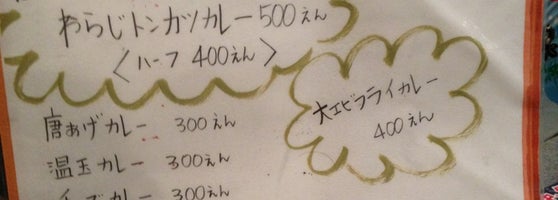 わらじトンカツカレー 500えん
〈ハーフ 400えん〉
大エビフライカレー
400えん
唐あげカレー 300えん
温玉カレー 300えん
チーズカレー 300えん